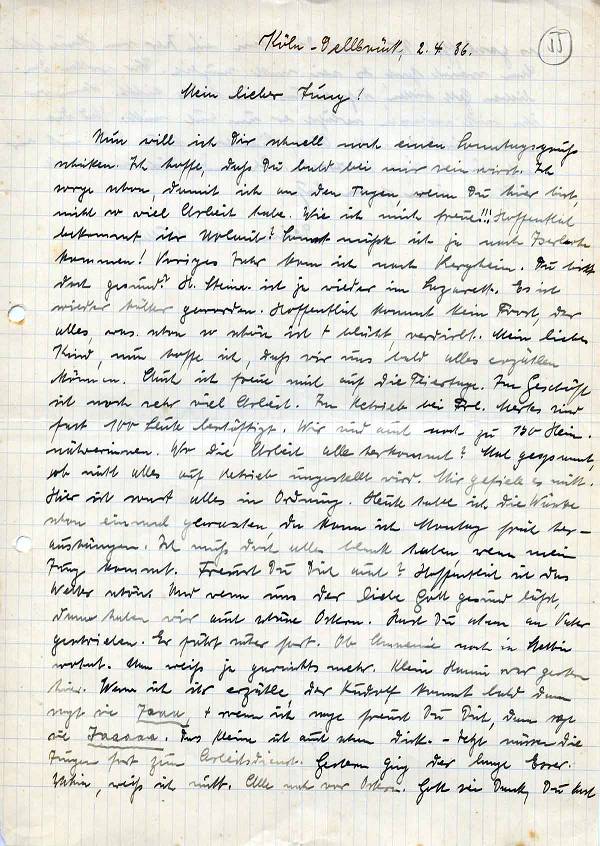 Köln-Dellbrück, 2.4.36.
Mein lieber Jung!
Nun will ich Dir schnell noch einen Sonntagsgruß
schicken. Ich hoffe, daß Du bald bei mir sein wirst. Ich
sorge schon, damit ich an den Tagen, wenn Du hier bist,
nicht so viel Arbeit habe. Wie ich mich freue!!! Hoffentlich
bekommt ihr Urlaub? Sonst müßte ich ja nach Iserlohn
kommen! Voriges Jahr kam ich nach Bergheim. Du bist
doch gesund? H. Steina ist ja wieder im Lazarett. Es ist
wieder kälter geworden. Hoffentlich kommt kein Frost, der
alles, was schon so schön ist + blüht, verdirbt. Mein liebes
Kind, nun hoffe ich, daß wir uns bald alles erzählen
können. Auch ich freue mich auf die Feiertage. Im Geschäft
ist noch sehr viel Arbeit. Im Betrieb bei Frl. sind
fast 100 Leute beschäftigt. Wir sind auch noch zu 130 Heim-
näherinnen. Wo die Arbeit alle herkommt? Mal gespannt,
ob nicht alles auf Betrieb umgestellt wird. Mir gefiele es nicht.
Hier ist sonst alles in Ordnung. Heute habe ich die Wäsche
schon einmal gewaschen da kann ich Montag früh her-
aushängen. Ich muß doch alles blank haben wenn mein
Jung kommt. Freust Du Dich auch? Hoffentlich ist das
Wetter schön. Und wenn uns der liebe Gott gesund läßt,
dann haben wir auch schöne Ostern. Hast Du schon an Vater
geschrieben. Er fährt immer fort. Ob noch in Stettin
wohnt. Man weiß ja garnichts mehr. Klein Hanni war gestern
hier. Wenn ich ihr erzähle, der Rudolf kommt bald dann
sagt sie Jaaa, + wenn ich sage freust Du Dich, dann sagt
sie Jaaaaa. Das Kleine ist auch schon dick. - Jetzt müssen die
Jungen fort zum Arbeitsdienst. Gestern ging der lange
Wohin, weiß ich nicht. Alle noch vor Ostern. Gott sei Dank, Du hast